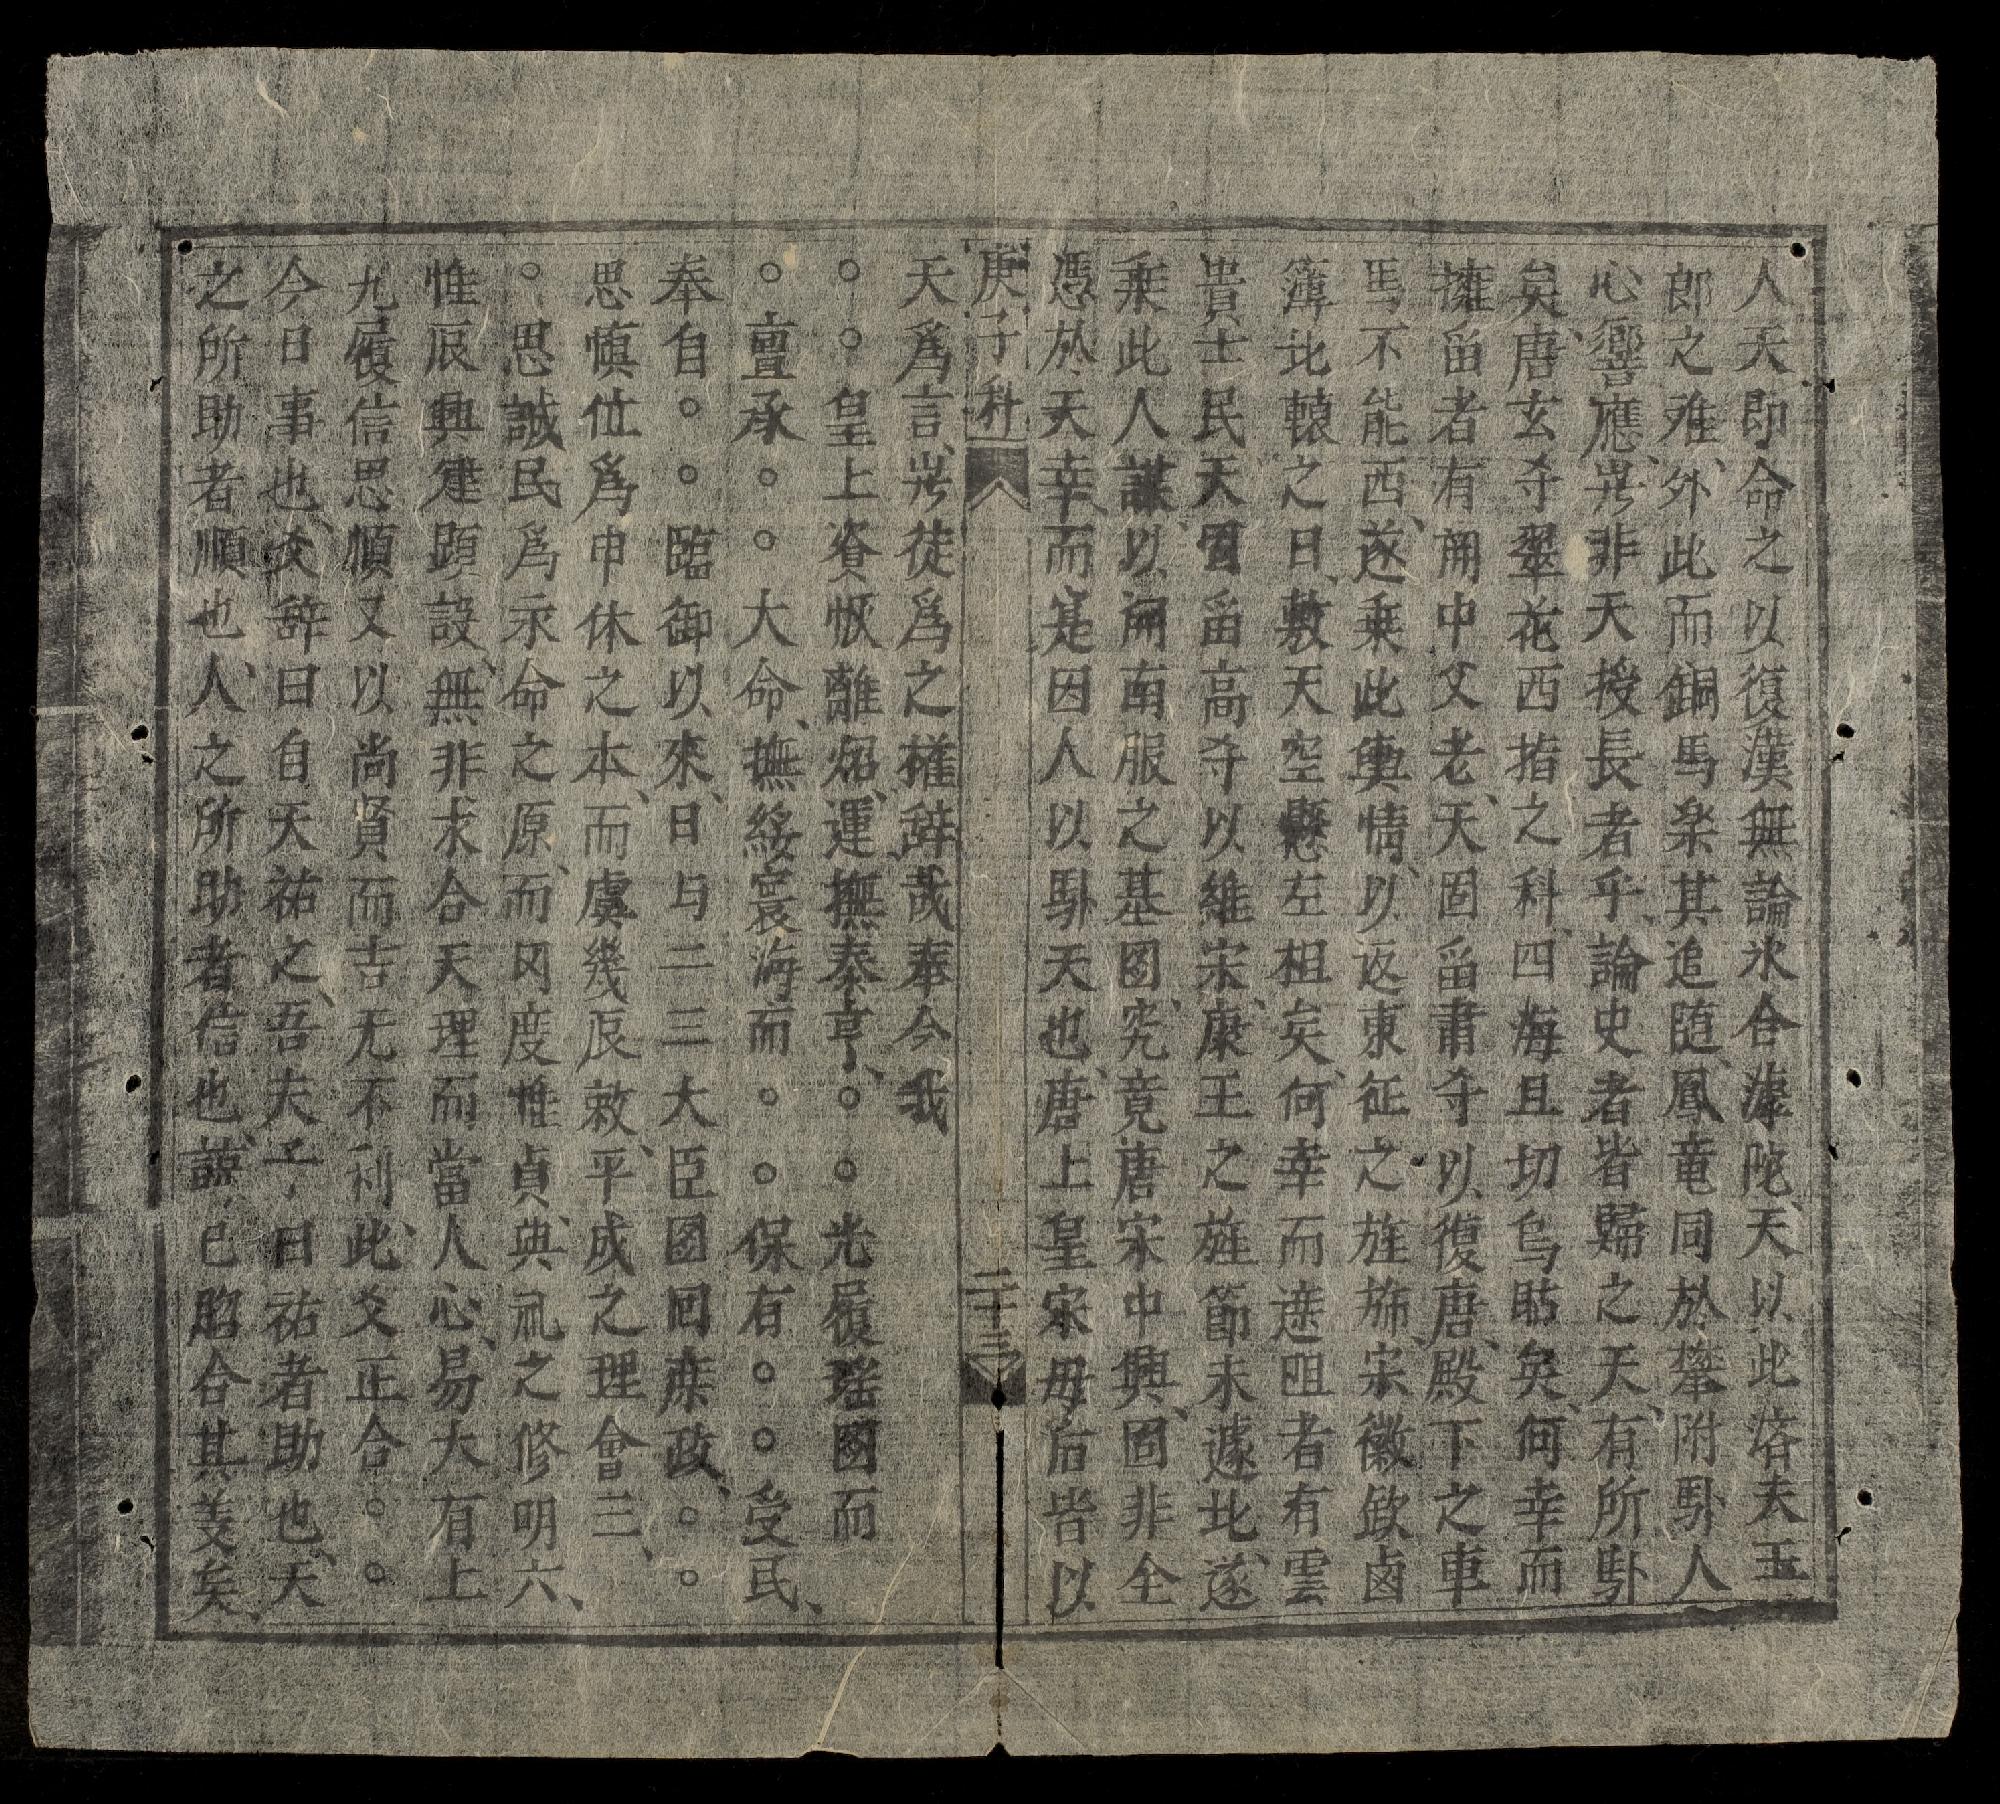 人天即命之以復漢無論氷合滹沱、天以此啓夫玉
郎之难、外此而銅馬楽其追随、鳳竜同於攀附卧人
心響應、岂非天授長者乎、論史者皆歸之天、有所卧
矣、唐玄守翠花西指之科、四海且切烏瞻矣、何幸而
擁畄者有関中父老、天固畄肅守以復唐、殿下之車
馬不能西、遂乗此輿情、以返東征之旌斾、宋徽欽鹵
簿北轅之日、敷天空懸左袒矣、何幸而遮咀者有雲
貴士民天固畄高守以維宋、康王之旌節未遽北、遂
乗此人謀、以開南服之基圖、究竟唐宋中興、固非全
憑於天幸、而是因人以卧天也、唐上皇宋母后皆以
庚子科
二十三
天爲言、岂徒爲之権辞哉奉今我
○○皇上資恢離炤、運撫泰亨、○○光履瑤圖而
○亶承○○大命、撫綏寰海而○○保有○○受民、
奉自○○臨御以來、日与二三大臣圖囘庶政、○○
思慎仕爲申休之本、而虞幾辰敕、平成之理會三、
○思誠民爲示命之原、而罔度惟貞、典礼之修明六、
惟辰興建顕設、無非求合天理而當人心、易大有上
九履信思順又以尚賢而吉无不利、此爻正合○○
今日事也、爻辞曰自天祐之、吾夫子、曰祐者助也、天
之所助者順也、人之所助者信也、譩、已脗合其美矣、